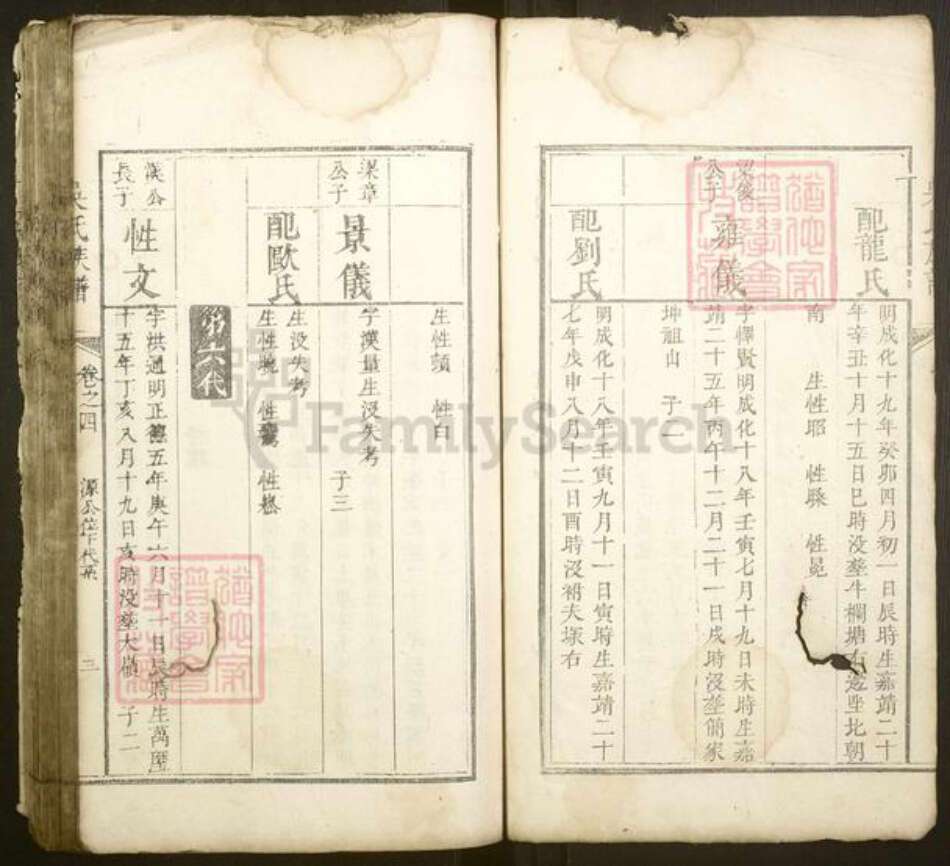 配龍氏
明成化十九年癸卯四月初一日辰時生嘉靖二十
年辛丑十月十五日巳時没塟牛欄塘右邊坐北朝
南 生性耶 性縣 性冕
公子
雍儀
字懌賢明成化十八年壬寅七月十九日未時生嘉
靖二十五年丙午十二月二十一日戌時没塟簡家
坤祖山 子二
配劉氏
明成化十八年壬寅九月十一日寅時生嘉靖二十
七年戊申八月十二日酉時没祔夫塚右
生性顗 性白
梁章
公子
景儀
字漢量生没失考 子三
配歐氏
生没失考
生性 性 性
第六代
漢公
長子
性文
字烘通明正德五年庚午六月十一日辰時生萬曆
十五年丁亥八月十九日亥時没塟大嶺 子二
吳氏族譜
卷之四
源公位下代系
三
FamilySearch